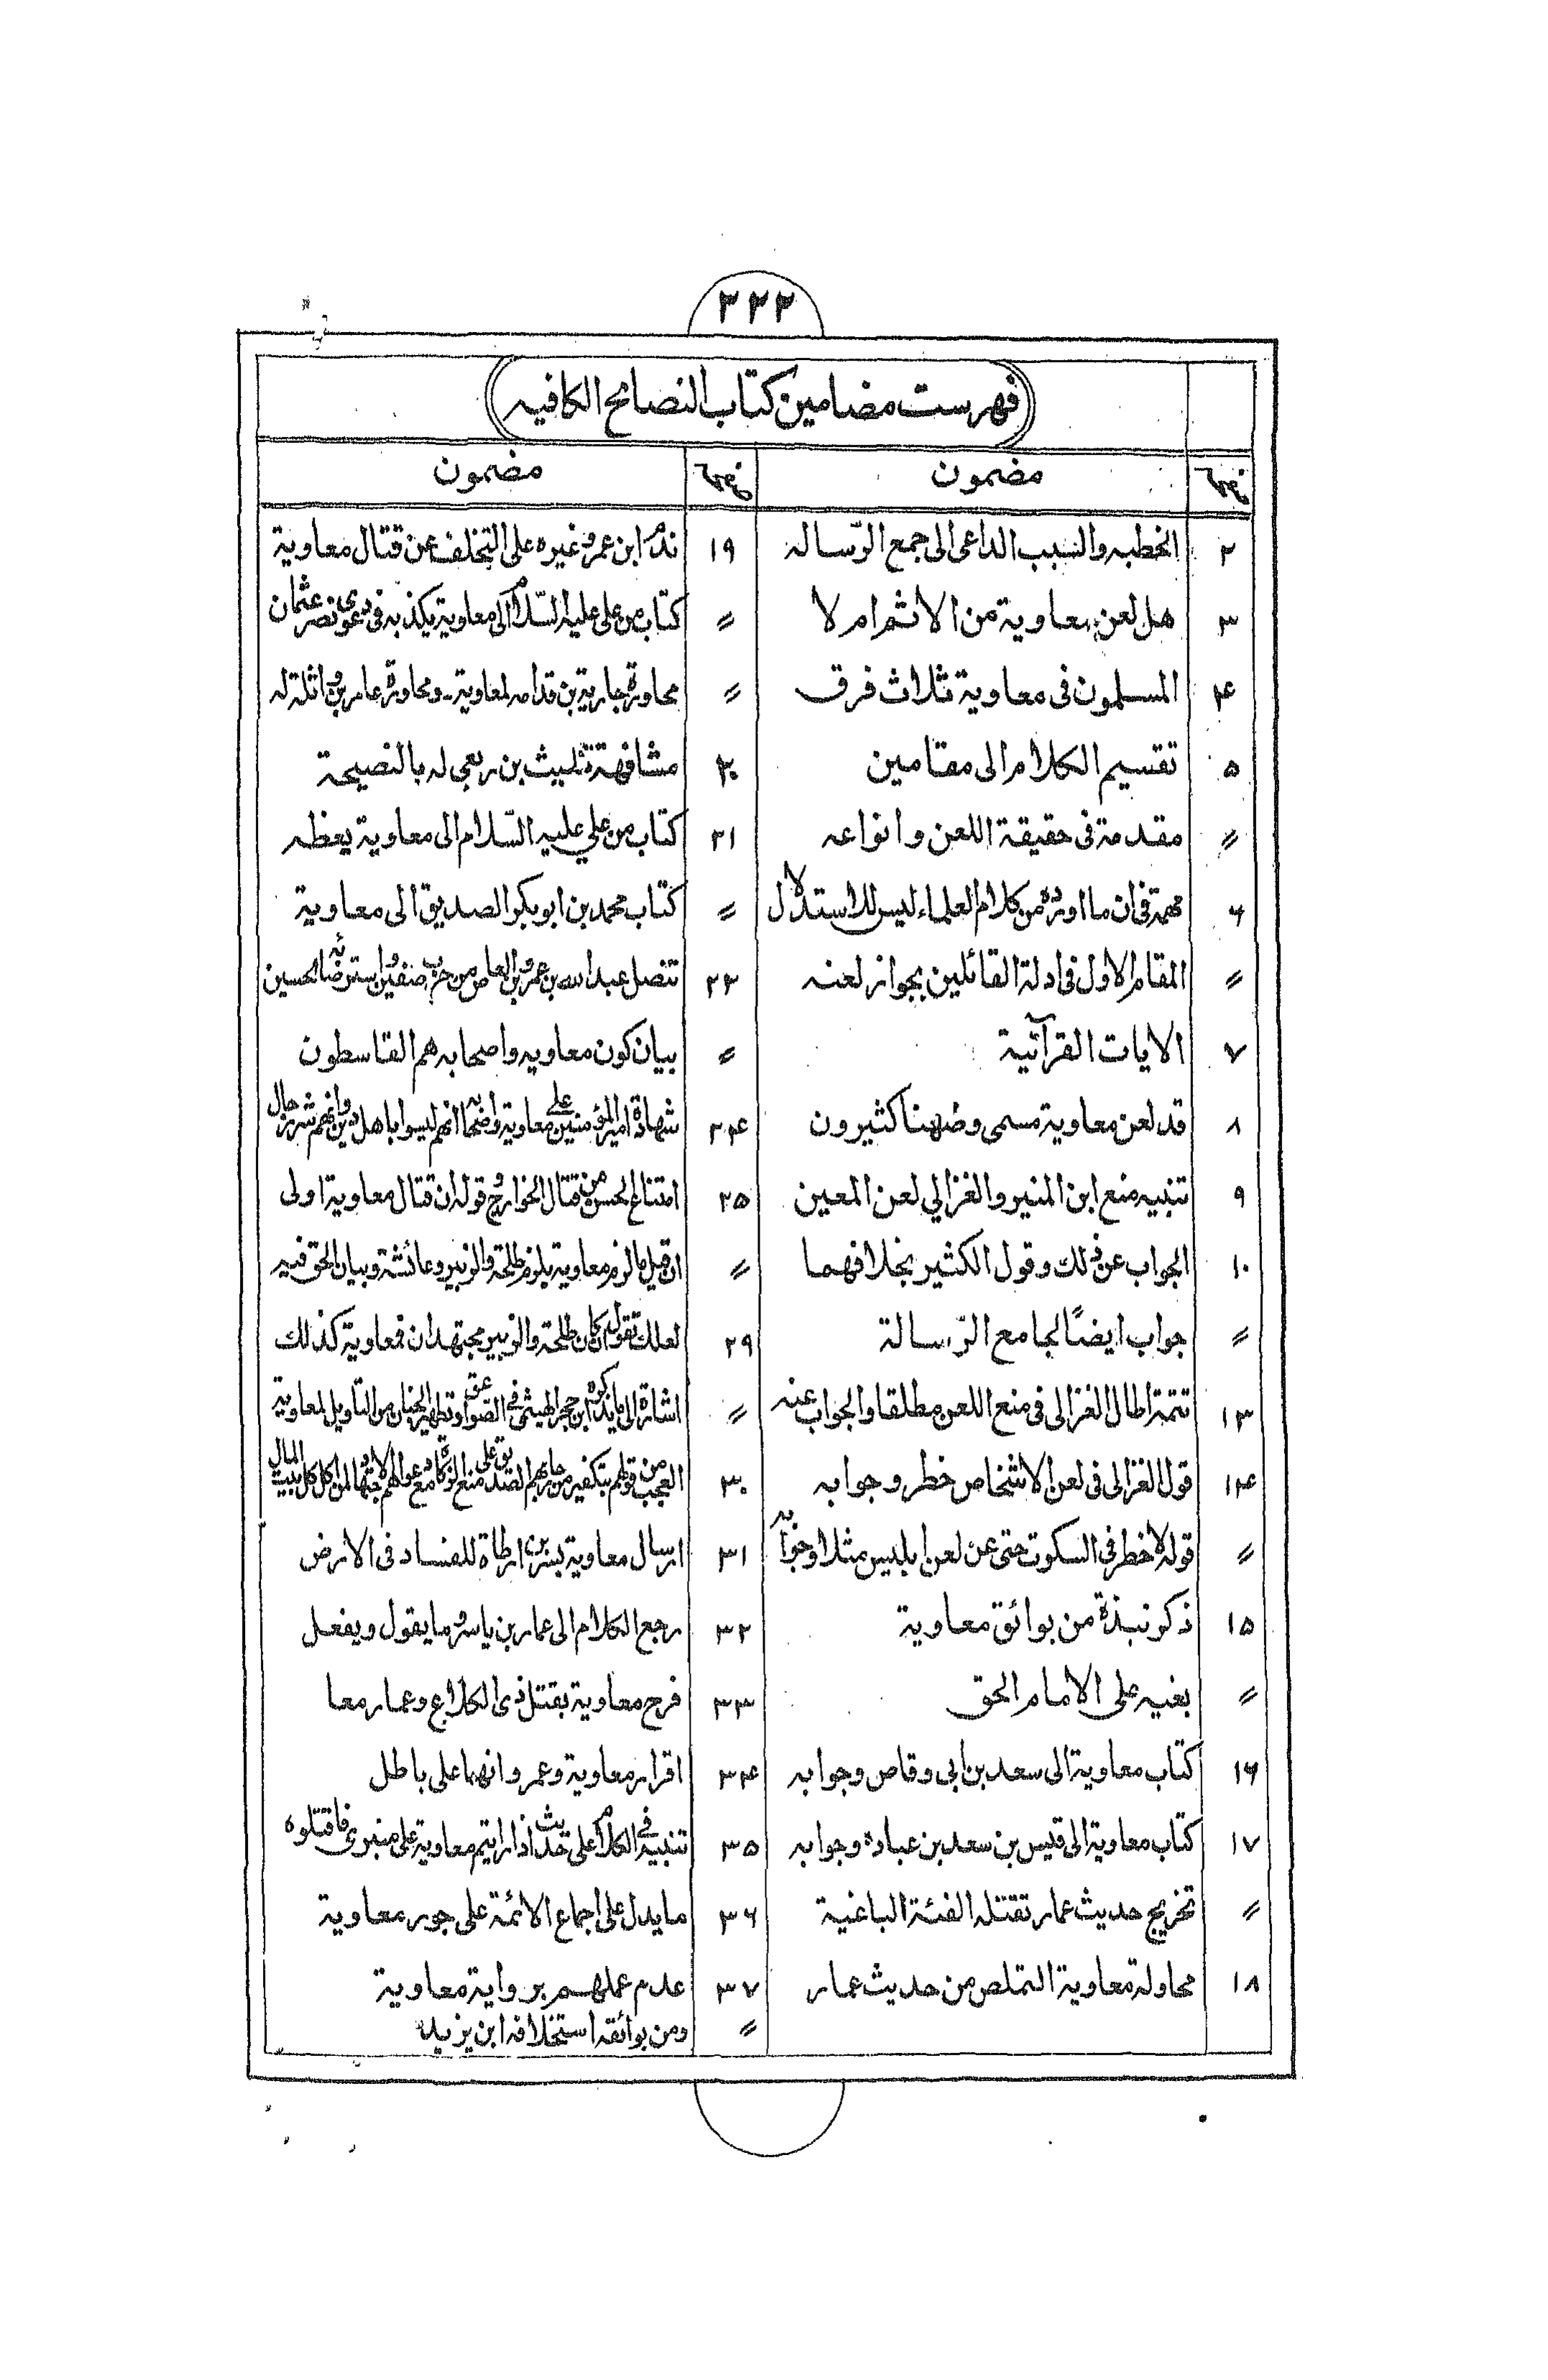 ۲۲۲
فهرست مضامین کتاب النصائح الکافیہ
صفحہ مضمون
۲ الخطبہ والسبب الداعی الی جمع الرّسالہ
۳ هل لعن معاویة من الاثم ام لا
۴ المسلمون فی معاویة ثلاث فرق
۵ تقسیم الکلام الی مقامین
〃 مقدمة فی حقیقة اللعن وانواعہ
۶ مهمة فی ان ما اوردہ من کلام العلماء لیس للاستدلال
〃 المقام الاول فی ادلة القائلین بجواز لعنہ
۷ الایات القرآنیة
۸ قد لعن معاویة مسمی وضمنا کثیرون
۹ تنبیہ منع ابن المنیر والغزالی لعن المعین
۱۰ الجواب عن ذلک وقول الکثیر بخلافهما
〃 جواب ایضًا لجامع الرّسالة
۱۳ تتمة اطال الغزالی فی منع اللعن مطلقا والجواب عنہ
۱۴ قول الغزالی فی لعن الاشخاص خطر وجوابہ
〃 قولہ لا خطر فی السکوت حتی عن لعن ابلیس مثلا وجوابہ
۱۵ ذکر نبذة من بوائق معاویة
〃 بغیہ علی الامام الحق
۱۶ کتاب معاویة الی سعد بن ابی وقاص وجوابہ
۱۷ کتاب معاویة الی قیس بن سعد بن عبادہ وجوابہ
〃 تخریج حدیث عمار تقتلہ الفئة الباغیة
۱۸ محاولة معاویة التملص من حدیث عمار
صفحہ مضمون
۱۹ ندم ابن عمر وغیرہ علی التخلف عن قتال معاویة
〃 کتاب من علی علیہ السّلام الی معاویة یکذبہ فی دعوی نصر عثمان
〃 محاورة جاریة بن قدامہ لمعاویة - ومحاورة عامر بن واثلة لہ
۲۰ مشافهة شبیث بن ربعی لہ بالنصیحة
۲۱ کتاب من علی علیہ السّلام الی معاویة یعظہ
〃 کتاب محمد بن ابوبکر الصدیق الی معاویة
۲۳ تنصل عبد اللہ بن عمرو بن العاص من حرب صفین واسترضائہ الحسین
〃 بیان کون معاویہ واصحابہ هم القاسطون
۲۴ شهادة امیر المؤمنین علی معاویة واصحابہ انهم لیسوا باهل دین وانهم شر رجال
۲۵ امتناع الحسن من قتال الخوارج وقولہ ان قتال معاویة اولی
〃 ان قیل ما لزم معاویة یلزم طلحة والزبیر وعائشة وبیان الحق فیہ
۲۹ لعلک تقول ان کان طلحة والزبیر مجتهدان فمعاویة کذلک
〃 اشارة الی ما یذکرہ ابن حجر الهیثمی فی الصواعق وتطهیر الجنان من التاویل لمعاویة
۳۰ العجب من قولهم بتکفیر من حاربهم الصدیق علی منع الزکاة مع دعواهم الاجتهاد لمن اکل کل بیت المال
۳۱ ارسال معاویة بسر بن ارطاة للفساد فی الارض
۳۲ رجع الکلام الی عمار بن یاسر وما یقول ویفعل
۳۳ فرح معاویة بقتل ذی الکلاع وعمار معا
۳۴ اقرار معاویة وعمرو انهما علی باطل
۳۵ تنبیہ فی الکلام علی حدیث اذا رایتم معاویة علی منبری فاقتلوہ
۳۶ ما یدل علی اجماع الائمة علی جور معاویة
۳۷ عدم عملهم بروایة معاویة
〃 ومن بوائقہ استخلافہ ابن یزید